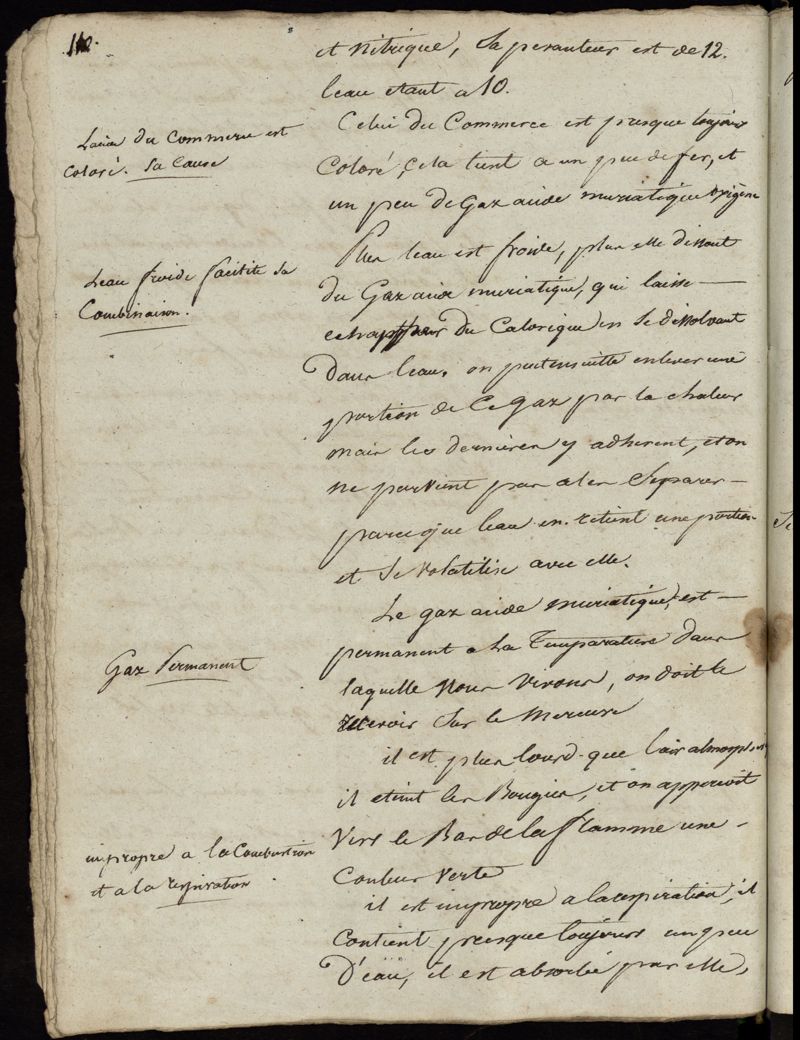 110.
et nitrique, Sa pesanteur est de 12.
leau etant a 10.
Lacide du Commerce est
Coloré. Sa Cause
Celui du Commerce est presque toujours
Coloré, Cela tient a un peu de fer, et
un peu de Gaz acide muriatique oxigène
Leau froide facilite Sa
Combinaison.
Plus leau est froide, plus elle dissout
du Gaz acide muriatique, qui laisse
echapper du Calorique en Se dissolvant
dans leau. on peut ensuitte enlever une
portion de Ce gaz par la chaleur
mais les dernieres y adherent, et on
ne parvient pas a les Separer
parce que leau en retient une portion
et Se volatilise avec elle.
Gaz Permanent
Le gaz acide muriatique, est
permanent a la Temparature dans
laquelle Nous vivons, on doit le
recevoir Sur le Mercure
il est plus lourd que lair atmosph
il eteint les Bougies, et on apperçoit
Vers le Bas de la flamme une
Couleur verte
impropre a la Combustion
et a la respiration
il est impropre a la respiration, il
Contient presque toujours un peu
D'eau, il est absorbé par elle,